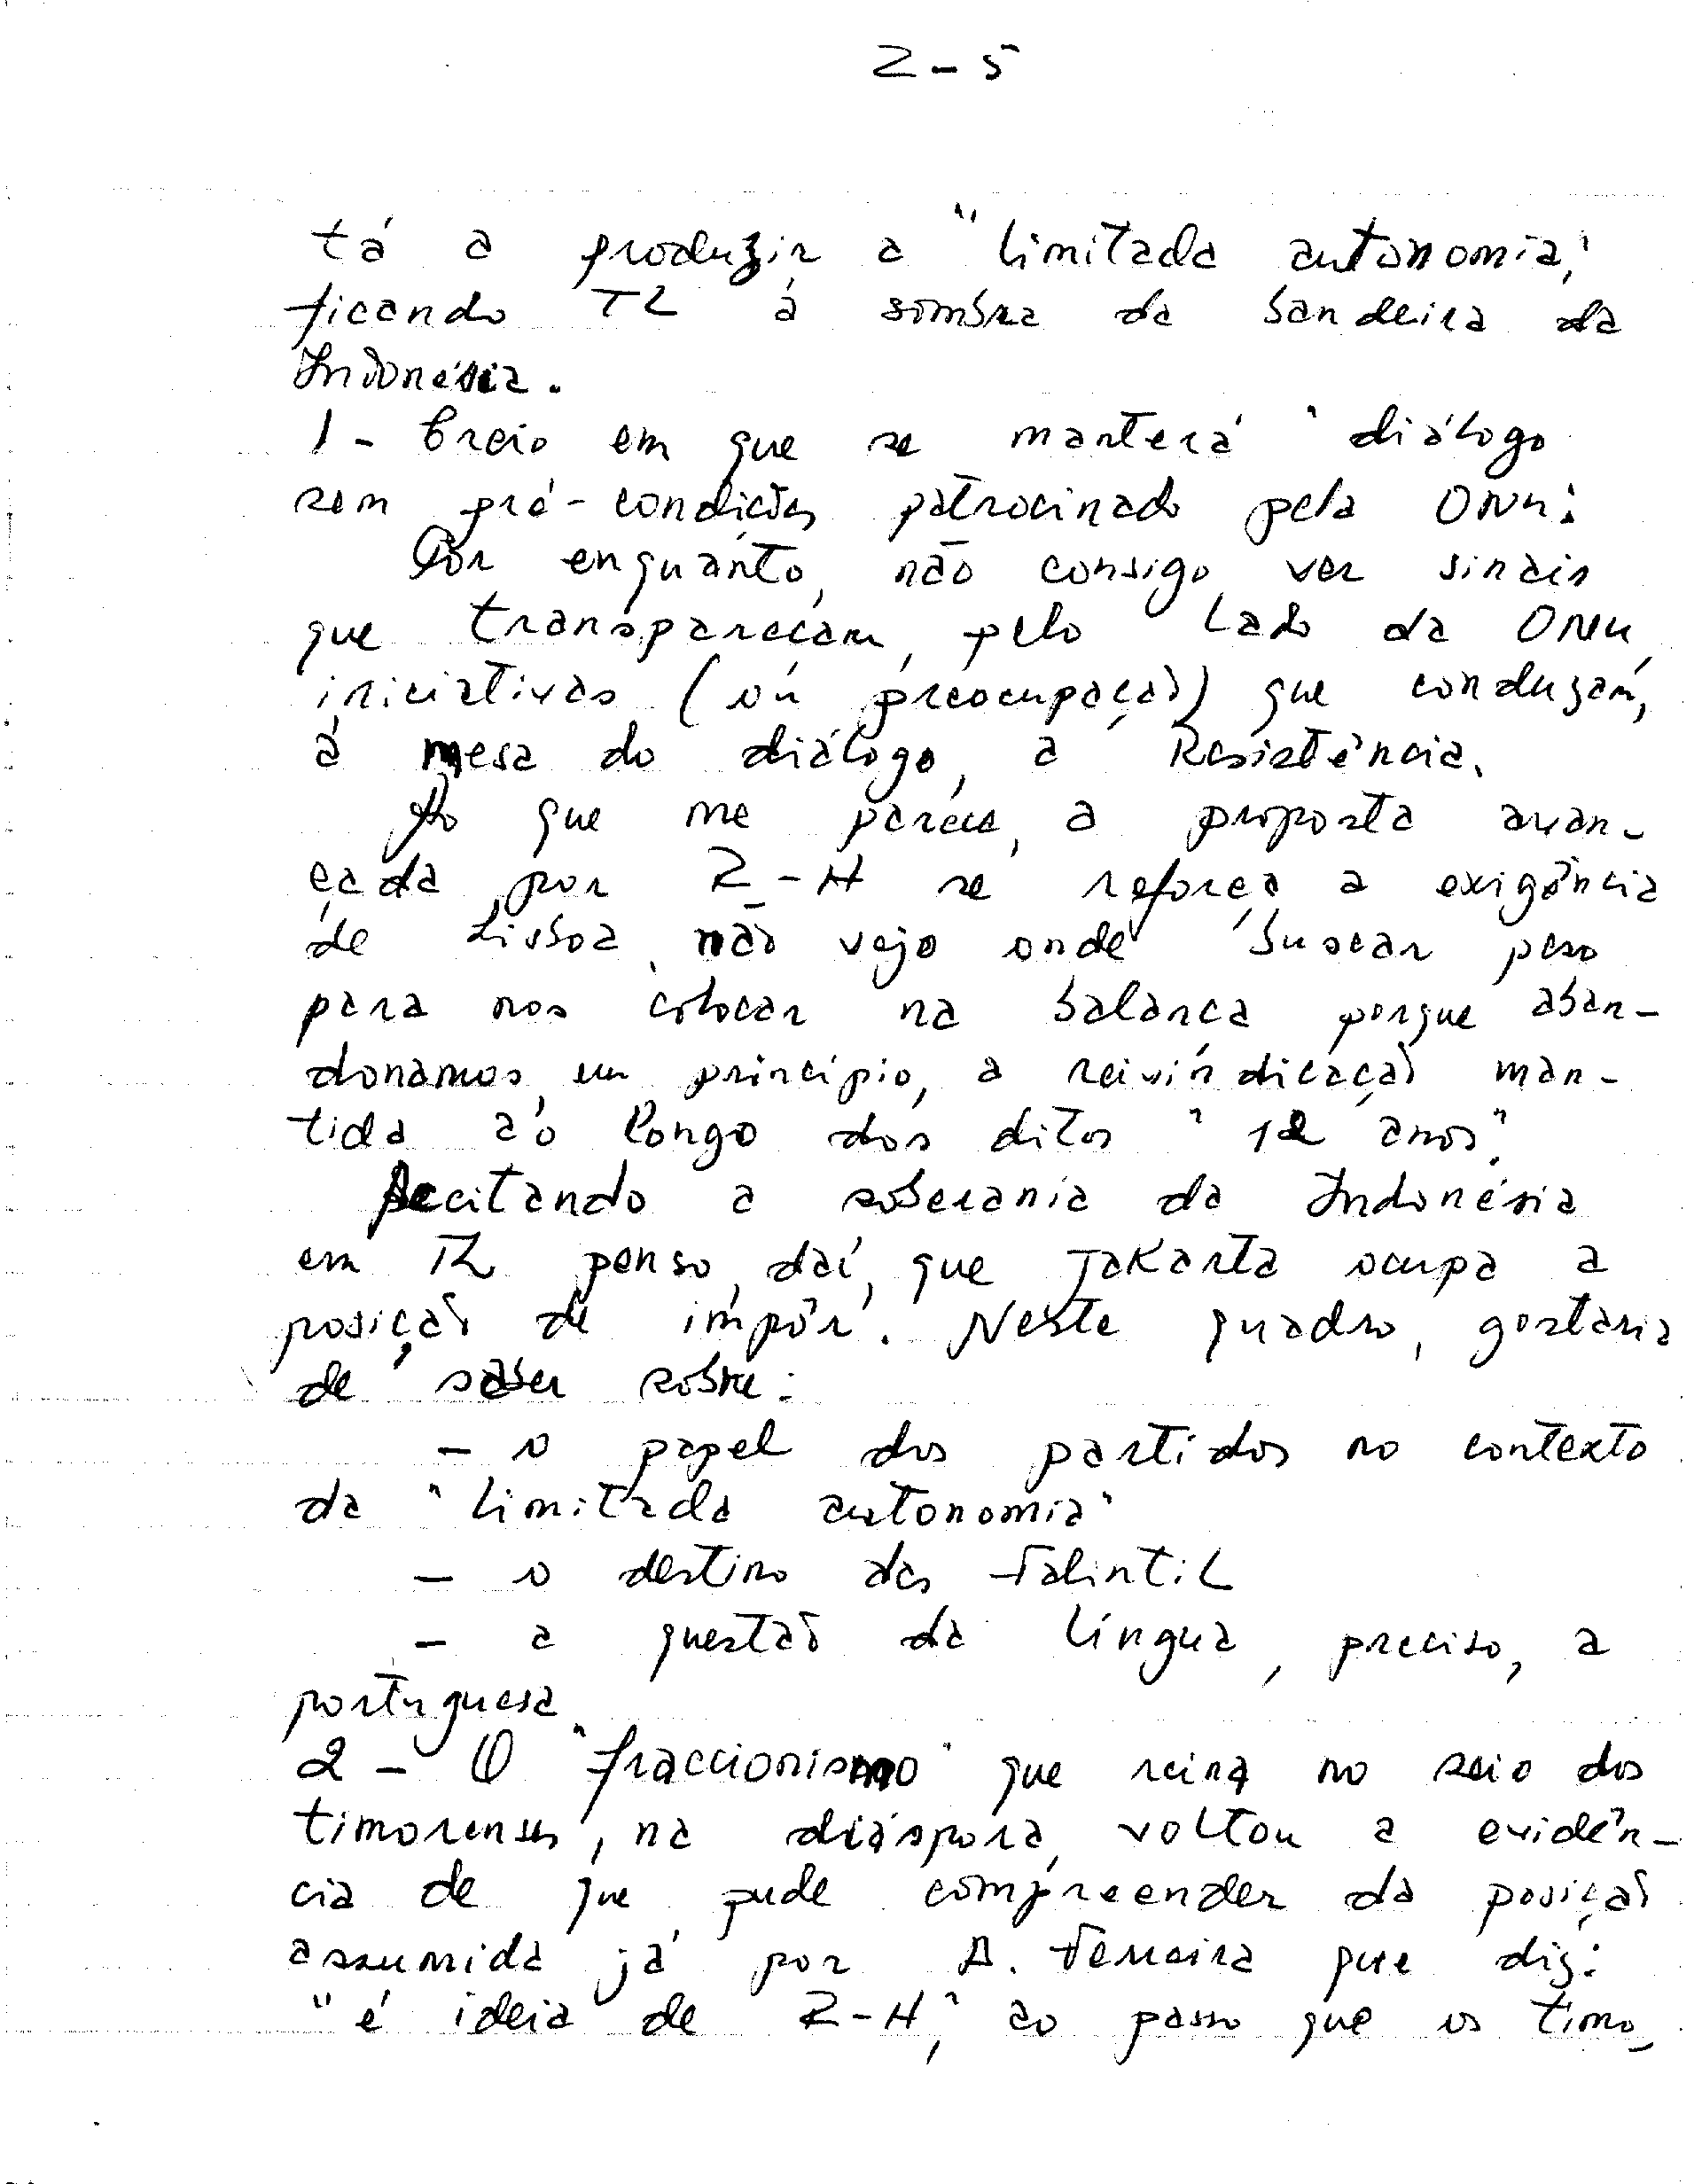 2-5
tá a produzir a "limitada autonomia",
ficando TL à sombra da bandeira da
Indonésia.
1- Creio em que se manterá "diálogo
sem pré-condições patrocinado pela ONU":
Por enquanto, não consigo ver sinais
que transpareçam, pelo lado da ONU,
iniciativas (ou preocupação) que conduzam,
à mesa do diálogo, a Resistência.
Ao que me parece, a proposta avan-
çada por R-H se reforça a exigência
de Lisboa, não vejo onde buscar peso
para nos colocar na balança porque aban-
donamos, em princípio, a reivindicação man-
tida ao longo dos ditos "12 anos".
Aceitando a soberania da Indonésia
em TL penso, daí, que Jakarta ocupa a
posição de impôr. Neste quadro, gostaria
de saber sobre:
- o papel dos partidos no contexto
da "limitada autonomia"
- o destino das Falintil
- a questão da língua, preciso, a
portuguesa
2- O "fraccionismo" que reina no seio dos
timorenses, na diáspora, voltou a evidên-
cia de que pude compreender da posição
assumida já por A. Ferreira que diz:
"é ideia de R-H", ao passo que os timo-